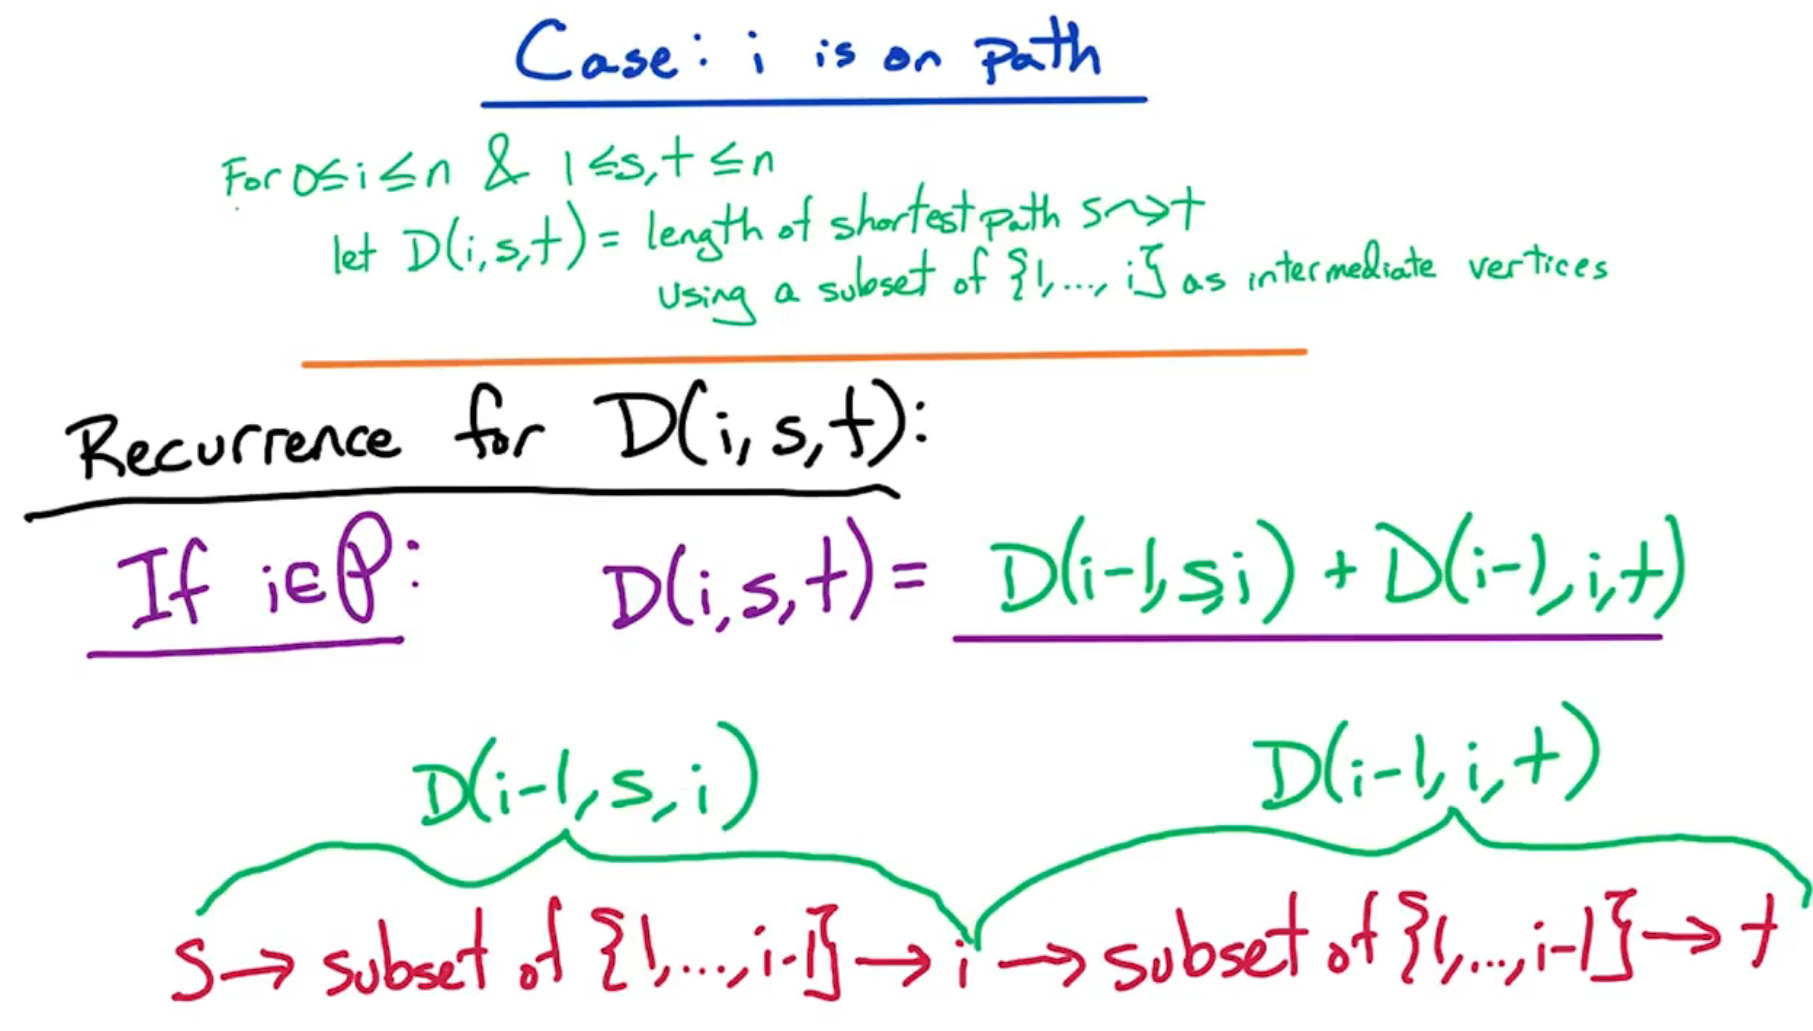 Case: i is on path
For 0≤i≤n & 1≤s,t≤n
let D(i,s,t) = length of shortest path s⇝t
using a subset of {1,...,i} as intermediate vertices
Recurrence for D(i,s,t):
If i∈P: D(i,s,t) = D(i-1,s,i) + D(i-1,i,t)
D(i-1,s,i) D(i-1,i,t)
S → subset of {1,...,i-1} → i → subset of {1,...,i-1} → t